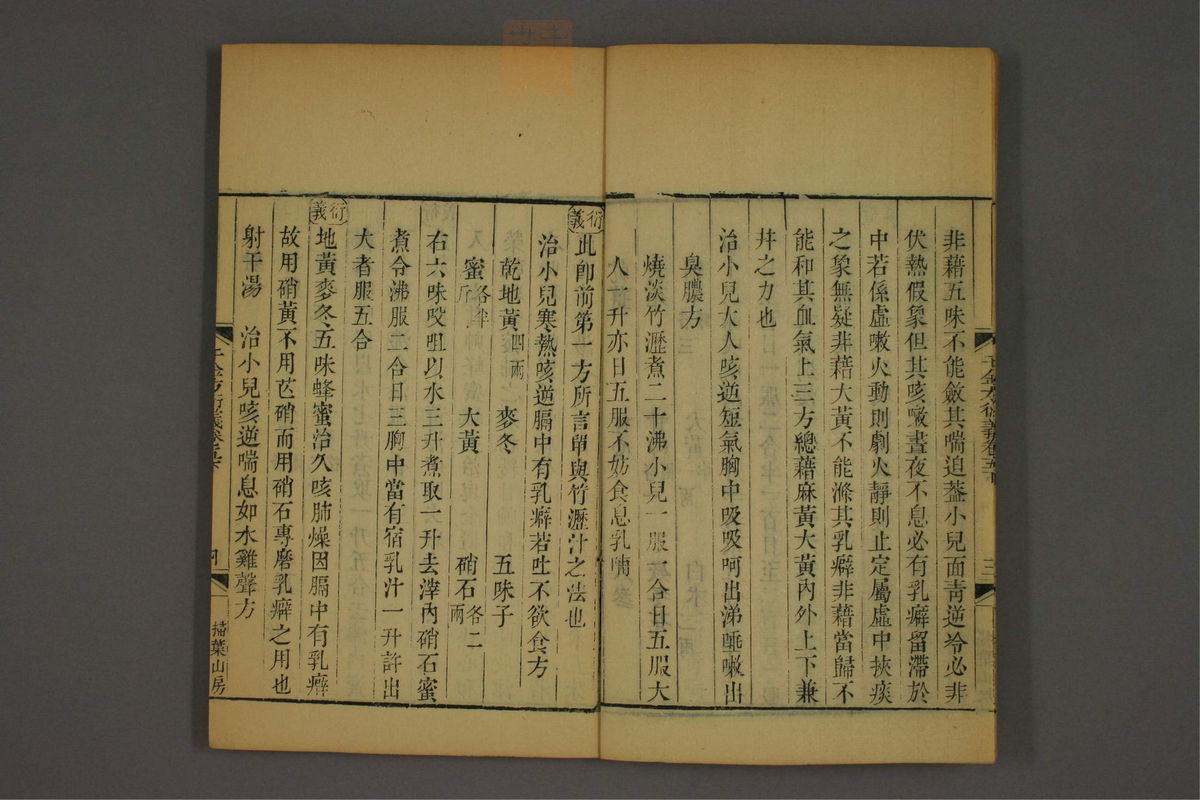 非藉五味不能斂其喘迫葢小兒面靑逆冷必非
伏熱假象但其咳嗽晝夜不息必有乳癖留滯於
中若係虛嗽火動則劇火靜則止定屬虛中挾痰
之象無疑非藉大黃不能滌其乳癖非藉當歸不
能和其血氣上三方總藉麻黃大黃內外上下兼
幷之力也
治小兒大人咳逆短氣胸中吸吸呵出涕唾嗽出
臭膿方
燒淡竹瀝煮二十沸小兒一服一合日五服大
人一升亦日五服不妨食息乳哺
衍義
此卽前第一方所言單與竹瀝汁之法也
治小兒寒熱咳逆膈中有乳癖若吐不欲食方
乾地黃四兩 麥冬 五味子
蜜各半斤 大黃 硝石各二兩
右六味㕮咀以水三升煮取一升去滓內硝石蜜
煮令沸服二合日三胸中當有宿乳汁一升許出
大者服五合
衍義
地黃麥冬五味蜂蜜治久咳肺燥因膈中有乳癖
故用硝黃不用芒硝而用硝石專磨乳癖之用也
射干湯 治小兒咳逆喘息如水雞聲方
千金方衍義卷五下
三
四
掃葉山房